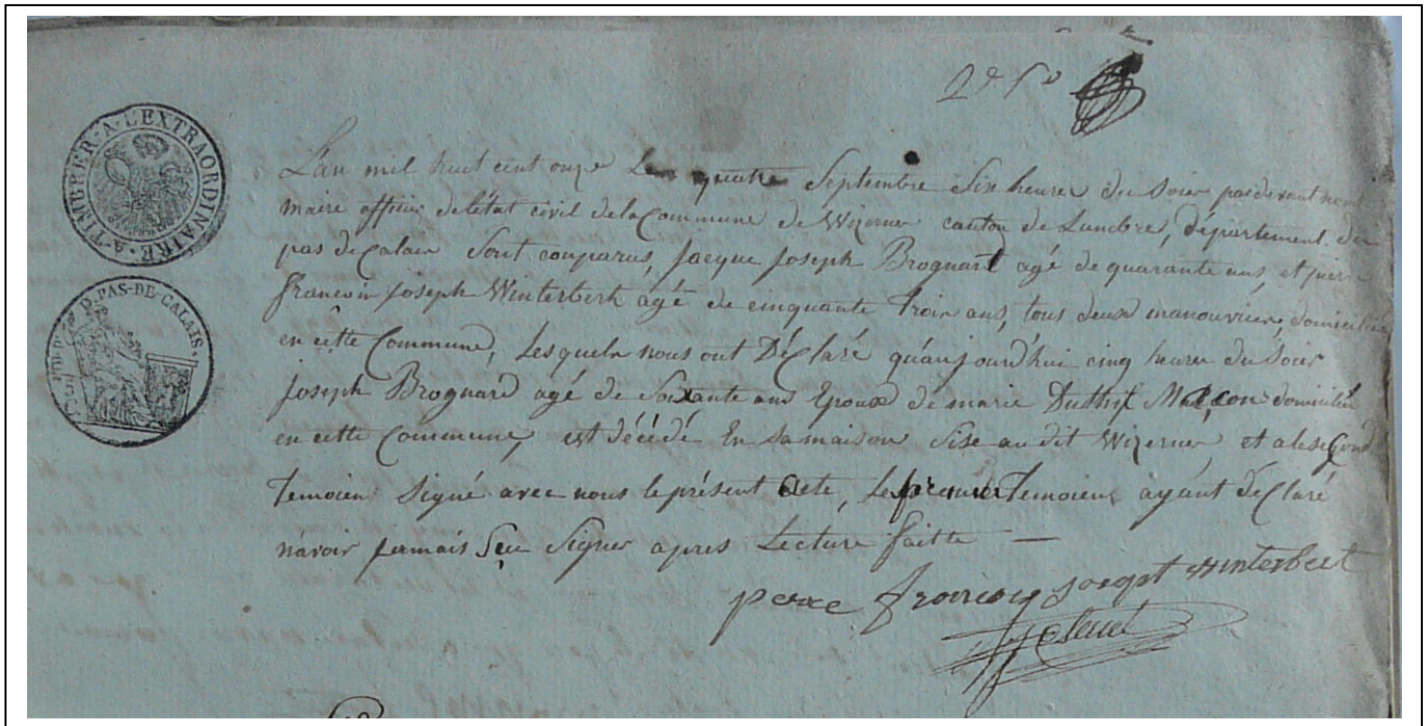 A TIMBRER A L'EXTRAORDINAIRE
PAS-DE-CALAIS
L'an mil huit cent onze Le quatre Septembre Six heures du Soir pardevant nous
maire officier de l'état civil de la Commune de Wizernes canton de Lumbres, département du
pas de Calais Sont comparus, Jacque Joseph Brognart agé de quarante ans, et pierre
francois Joseph Winterberk agé de cinquante trois ans, tous deux manouvriers, domiciliés
en cette Commune, Lesquels nous ont Déclaré qu'aujourd'hui cinq heures du Soir
Joseph Brognard agé de Soixante ans Epoux de marie Maçon domicilié
en cette Commune, est décédé En sa maison Sise au dit Wizernes, et a le second
Temoien Signé avec nous le présent acte, Le premier Temoien ayant déclaré
n'avoir jamais Sçu Signer apres Lecture faitte —
francois winterbert